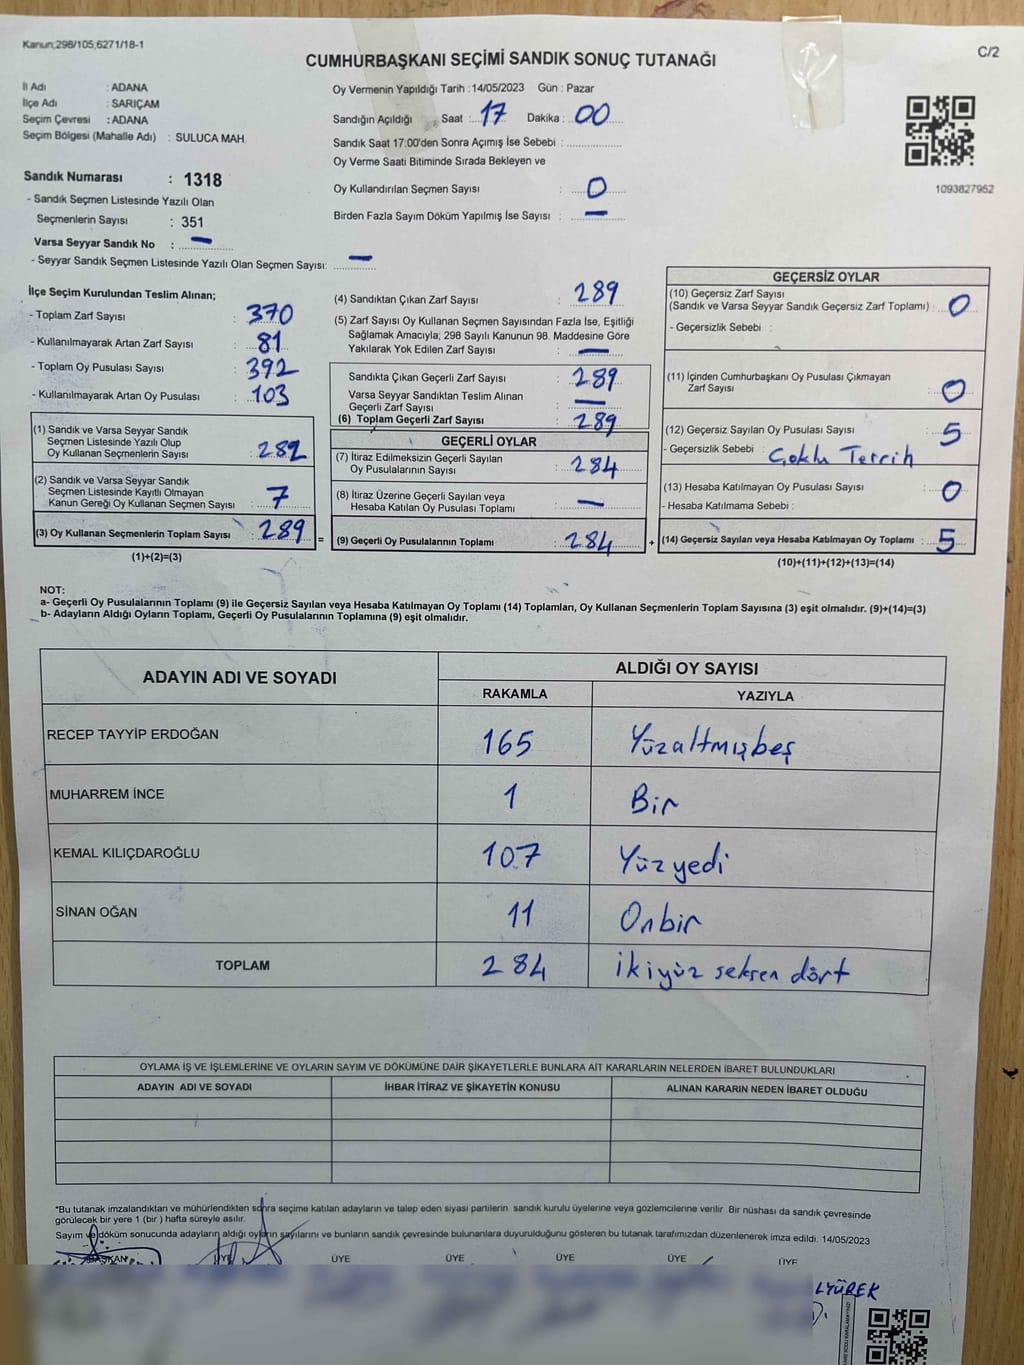 Kanun;298/105,6271/18-1
CUMHURBAŞKANI SEÇİMİ SANDIK SONUÇ TUTANAĞI
C/2
İl Adı : ADANA
İlçe Adı : SARIÇAM
Seçim Çevresi : ADANA
Seçim Bölgesi (Mahalle Adı) : SULUCA MAH.
Sandık Numarası : 1318
- Sandık Seçmen Listesinde Yazılı Olan
Seçmenlerin Sayısı : 351
Varsa Seyyar Sandık No : —
- Seyyar Sandık Seçmen Listesinde Yazılı Olan Seçmen Sayısı: —
Oy Vermenin Yapıldığı Tarih : 14/05/2023 Gün : Pazar
Sandığın Açıldığı Saat : 17 Dakika : 00
Sandık Saat 17:00'den Sonra Açımış İse Sebebi :
Oy Verme Saati Bitiminde Sırada Bekleyen ve
Oy Kullandırılan Seçmen Sayısı : 0
Birden Fazla Sayım Döküm Yapılmış İse Sayısı : —
1093827952
İlçe Seçim Kurulundan Teslim Alınan;
- Toplam Zarf Sayısı : 370
- Kullanılmayarak Artan Zarf Sayısı : 81
- Toplam Oy Pusulası Sayısı : 392
- Kullanılmayarak Artan Oy Pusulası : 103
(1) Sandık ve Varsa Seyyar Sandık
Seçmen Listesinde Yazılı Olup
Oy Kullanan Seçmenlerin Sayısı : 282
(2) Sandık ve Varsa Seyyar Sandık
Seçmen Listesinde Kayıtlı Olmayan
Kanun Gereği Oy Kullanan Seçmen Sayısı : 7
(3) Oy Kullanan Seçmenlerin Toplam Sayısı : 289
(1)+(2)=(3)
=
(4) Sandıktan Çıkan Zarf Sayısı : 289
(5) Zarf Sayısı Oy Kullanan Seçmen Sayısından Fazla İse, Eşitliği
Sağlamak Amacıyla; 298 Sayılı Kanunun 98. Maddesine Göre
Yakılarak Yok Edilen Zarf Sayısı : —
Sandıkta Çıkan Geçerli Zarf Sayısı : 289
Varsa Seyyar Sandıktan Teslim Alınan
Geçerli Zarf Sayısı : —
(6) Toplam Geçerli Zarf Sayısı : 289
GEÇERLİ OYLAR
(7) İtiraz Edilmeksizin Geçerli Sayılan
Oy Pusulalarının Sayısı : 284
(8) İtiraz Üzerine Geçerli Sayılan veya
Hesaba Katılan Oy Pusulası Toplamı : —
(9) Geçerli Oy Pusulalarının Toplamı : 284
+
GEÇERSİZ OYLAR
(10) Geçersiz Zarf Sayısı
(Sandık ve Varsa Seyyar Sandık Geçersiz Zarf Toplamı) : 0
- Geçersizlik Sebebi :
(11) İçinden Cumhurbaşkanı Oy Pusulası Çıkmayan
Zarf Sayısı : 0
(12) Geçersiz Sayılan Oy Pusulası Sayısı : 5
- Geçersizlik Sebebi : Çoklu Tercih
(13) Hesaba Katılmayan Oy Pusulası Sayısı : 0
- Hesaba Katılmama Sebebi :
(14) Geçersiz Sayılan veya Hesaba Katılmayan Oy Toplamı : 5
(10)+(11)+(12)+(13)=(14)
NOT:
a- Geçerli Oy Pusulalarının Toplamı (9) ile Geçersiz Sayılan veya Hesaba Katılmayan Oy Toplamı (14) Toplamları, Oy Kullanan Seçmenlerin Toplam Sayısına (3) eşit olmalıdır. (9)+(14)=(3)
b- Adayların Aldığı Oyların Toplamı, Geçerli Oy Pusulalarının Toplamına (9) eşit olmalıdır.
ADAYIN ADI VE SOYADI ALDIĞI OY SAYISI
RAKAMLA YAZIYLA
RECEP TAYYİP ERDOĞAN 165 Yüzaltmışbeş
MUHARREM İNCE 1 Bir
KEMAL KILIÇDAROĞLU 107 Yüzyedi
SİNAN OĞAN 11 Onbir
TOPLAM 284 ikiyüz seksen dört
OYLAMA İŞ VE İŞLEMLERİNE VE OYLARIN SAYIM VE DÖKÜMÜNE DAİR ŞİKAYETLERLE BUNLARA AİT KARARLARIN NELERDEN İBARET BULUNDUKLARI
ADAYIN ADI VE SOYADI İHBAR İTİRAZ VE ŞİKAYETİN KONUSU ALINAN KARARIN NEDEN İBARET OLDUĞU
*Bu tutanak imzalandıktan ve mühürlendikten sonra seçime katılan adayların ve talep eden siyasi partilerin sandık kurulu üyelerine veya gözlemcilerine verilir. Bir nüshası da sandık çevresinde
görülecek bir yere 1 (bir ) hafta süreyle asılır.
Sayım ve döküm sonucunda adayların aldığı oyların sayılarını ve bunların sandık çevresinde bulunanlara duyurulduğunu gösteren bu tutanak tarafımızdan düzenlenerek imza edildi. 14/05/2023
BAŞKAN ÜYE ÜYE ÜYE ÜYE ÜYE ÜYE